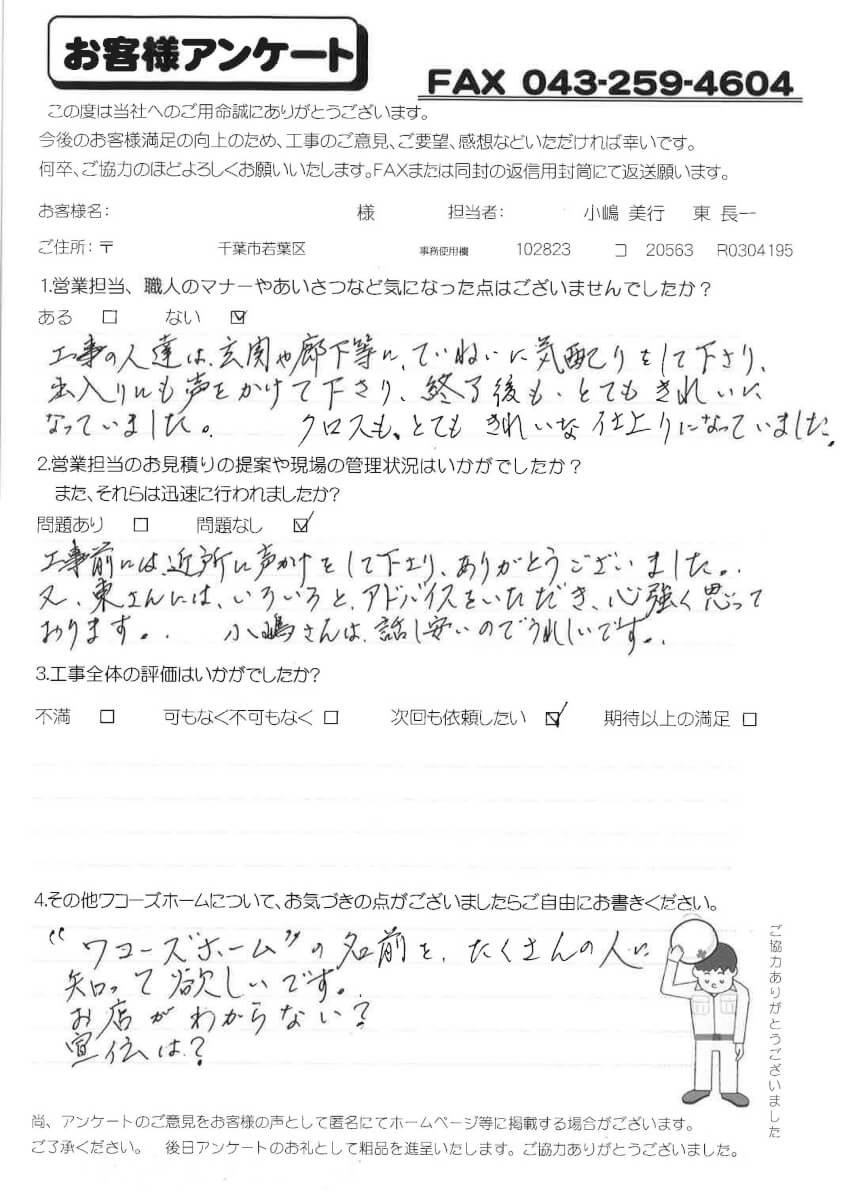 お客様アンケート
FAX 043-259-4604
この度は当社へのご用命誠にありがとうございます。
今後のお客様満足の向上のため、工事のご意見、ご要望、感想などいただければ幸いです。
何卒、ご協力のほどよろしくお願いいたします。FAXまたは同封の返信用封筒にて返送願います。
お客様名: 様 担当者: 小嶋 美行 東 長一
ご住所:〒 千葉市若葉区 事務使用欄 102823 コ 20563 R0304195
1.営業担当、職人のマナーやあいさつなど気になった点はございませんでしたか?
ある □ ない ☑
工事の人達は、玄関や廊下等に、ていねいに気配りをして下さり、
出入りにも声をかけて下さり、終了後も、とてもきれいに
なっていました。 クロスも、とてもきれいな仕上りになっていました。
2.営業担当のお見積りの提案や現場の管理状況はいかがでしたか?
また、それらは迅速に行われましたか?
問題あり □ 問題なし ☑
工事前には、近所に声かけをして下さり、ありがとうございました。
又、東さんには、いろいろと、アドバイスをいただき、心強く思って
おります。 小嶋さんは、話し安いのでうれしいです。
3.工事全体の評価はいかがでしたか?
不満 □ 可もなく不可もなく □ 次回も依頼したい ☑ 期待以上の満足 □
4.その他ワコーズホームについて、お気づきの点がございましたらご自由にお書きください。
“ワコーズホーム”の名前を、たくさんの人に
知って欲しいです。
お店がわからない?
宣伝は?
ご協力ありがとうございました
尚、アンケートのご意見をお客様の声として匿名にてホームページ等に掲載する場合がございます。
ご了承ください。 後日アンケートのお礼として粗品を進呈いたします。ご協力ありがとうございました。